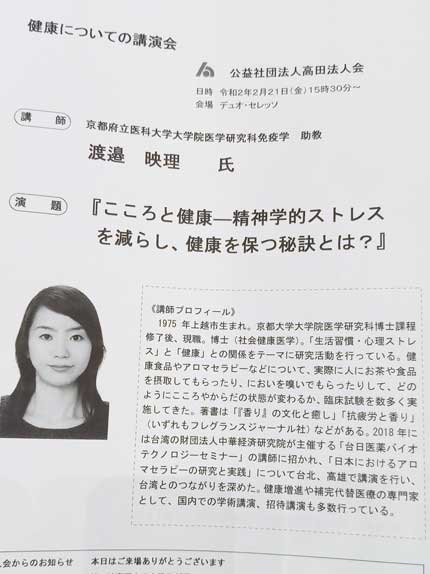 健康についての講演会
公益社団法人高田法人会
日時 令和2年2月21日(金)15時30分～
会場 デュオ・セレッソ
講師
京都府立医科大学大学院医学研究科免疫学 助教
渡邉 映理 氏
演題
『こころと健康―精神学的ストレス
を減らし、健康を保つ秘訣とは？』
《講師プロフィール》
1975年上越市生まれ。京都大学大学院医学研究科博士課程
修了後、現職。博士（社会健康医学）。「生活習慣・心理ストレ
ス」と「健康」との関係をテーマに研究活動を行っている。健
康食品やアロマセラピーなどについて、実際に人にお茶や食品
を摂取してもらったり、においを嗅いでもらったりして、どの
ようにこころやからだの状態が変わるか、臨床試験を数多く実
施してきた。著書は「『香り』の文化と癒し」「抗疲労と香り」
（いずれもフレグランスジャーナル社）などがある。2018年に
は台湾の財団法人中華経済研究院が主催する「台日医薬バイオ
テクノロジーセミナー」の講師に招かれ、「日本におけるアロ
マセラピーの研究と実践」について台北、高雄で講演を行い、
台湾とのつながりを深めた。健康増進や補完代替医療の専門家
として、国内での学術講演、招待講演も多数行っている。
人会からのお知らせ 本日はご来場ありがとうございます